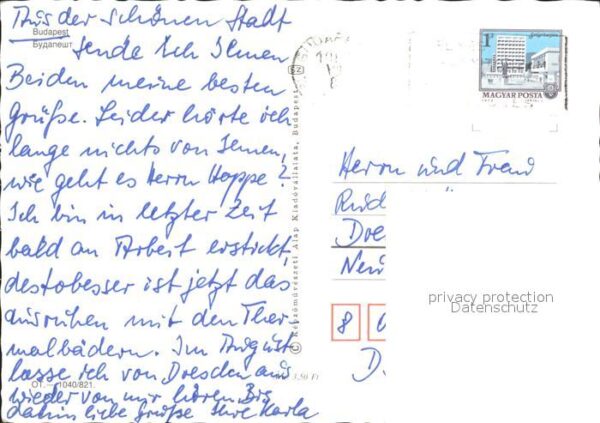 Aus der schönen Stadt
Budapest
Будапешт
sende ich Ihnen
Beiden meine besten
Grüße. Leider hörte ich
lange nichts von Ihnen,
wie geht es Herrn Hoppe?
Ich bin in letzter Zeit
bald an Arbeit erstickt,
destobesser ist jetzt das
ausruhen mit den Ther-
malbädern. Im August
lasse ich von Dresden aus
wieder von mir hören. Bis
dahin liebe Grüße Ihre Karla
OT. – 1040/821.
© Képzőművészeti Alap Kiadóvállalata, Budapest
3,50 Ft
1 Ft
MAGYAR POSTA
Herrn und Frau
Rud
Dre
Neu
8 0
D.
privacy protection
Datenschutz